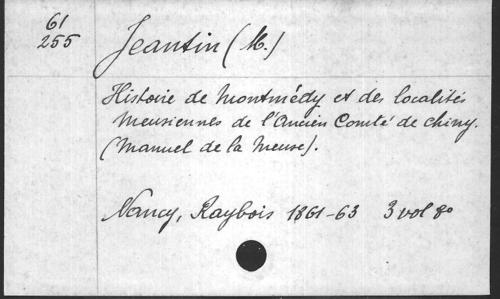 61
255
Jeantin (M.)
Histoire de Montmédy et des localités
meusiennes de l'Ancien Comté de Chiny.
(Manuel de la Meuse).
Nancy, Raybois 1861-63 3 vol 8o